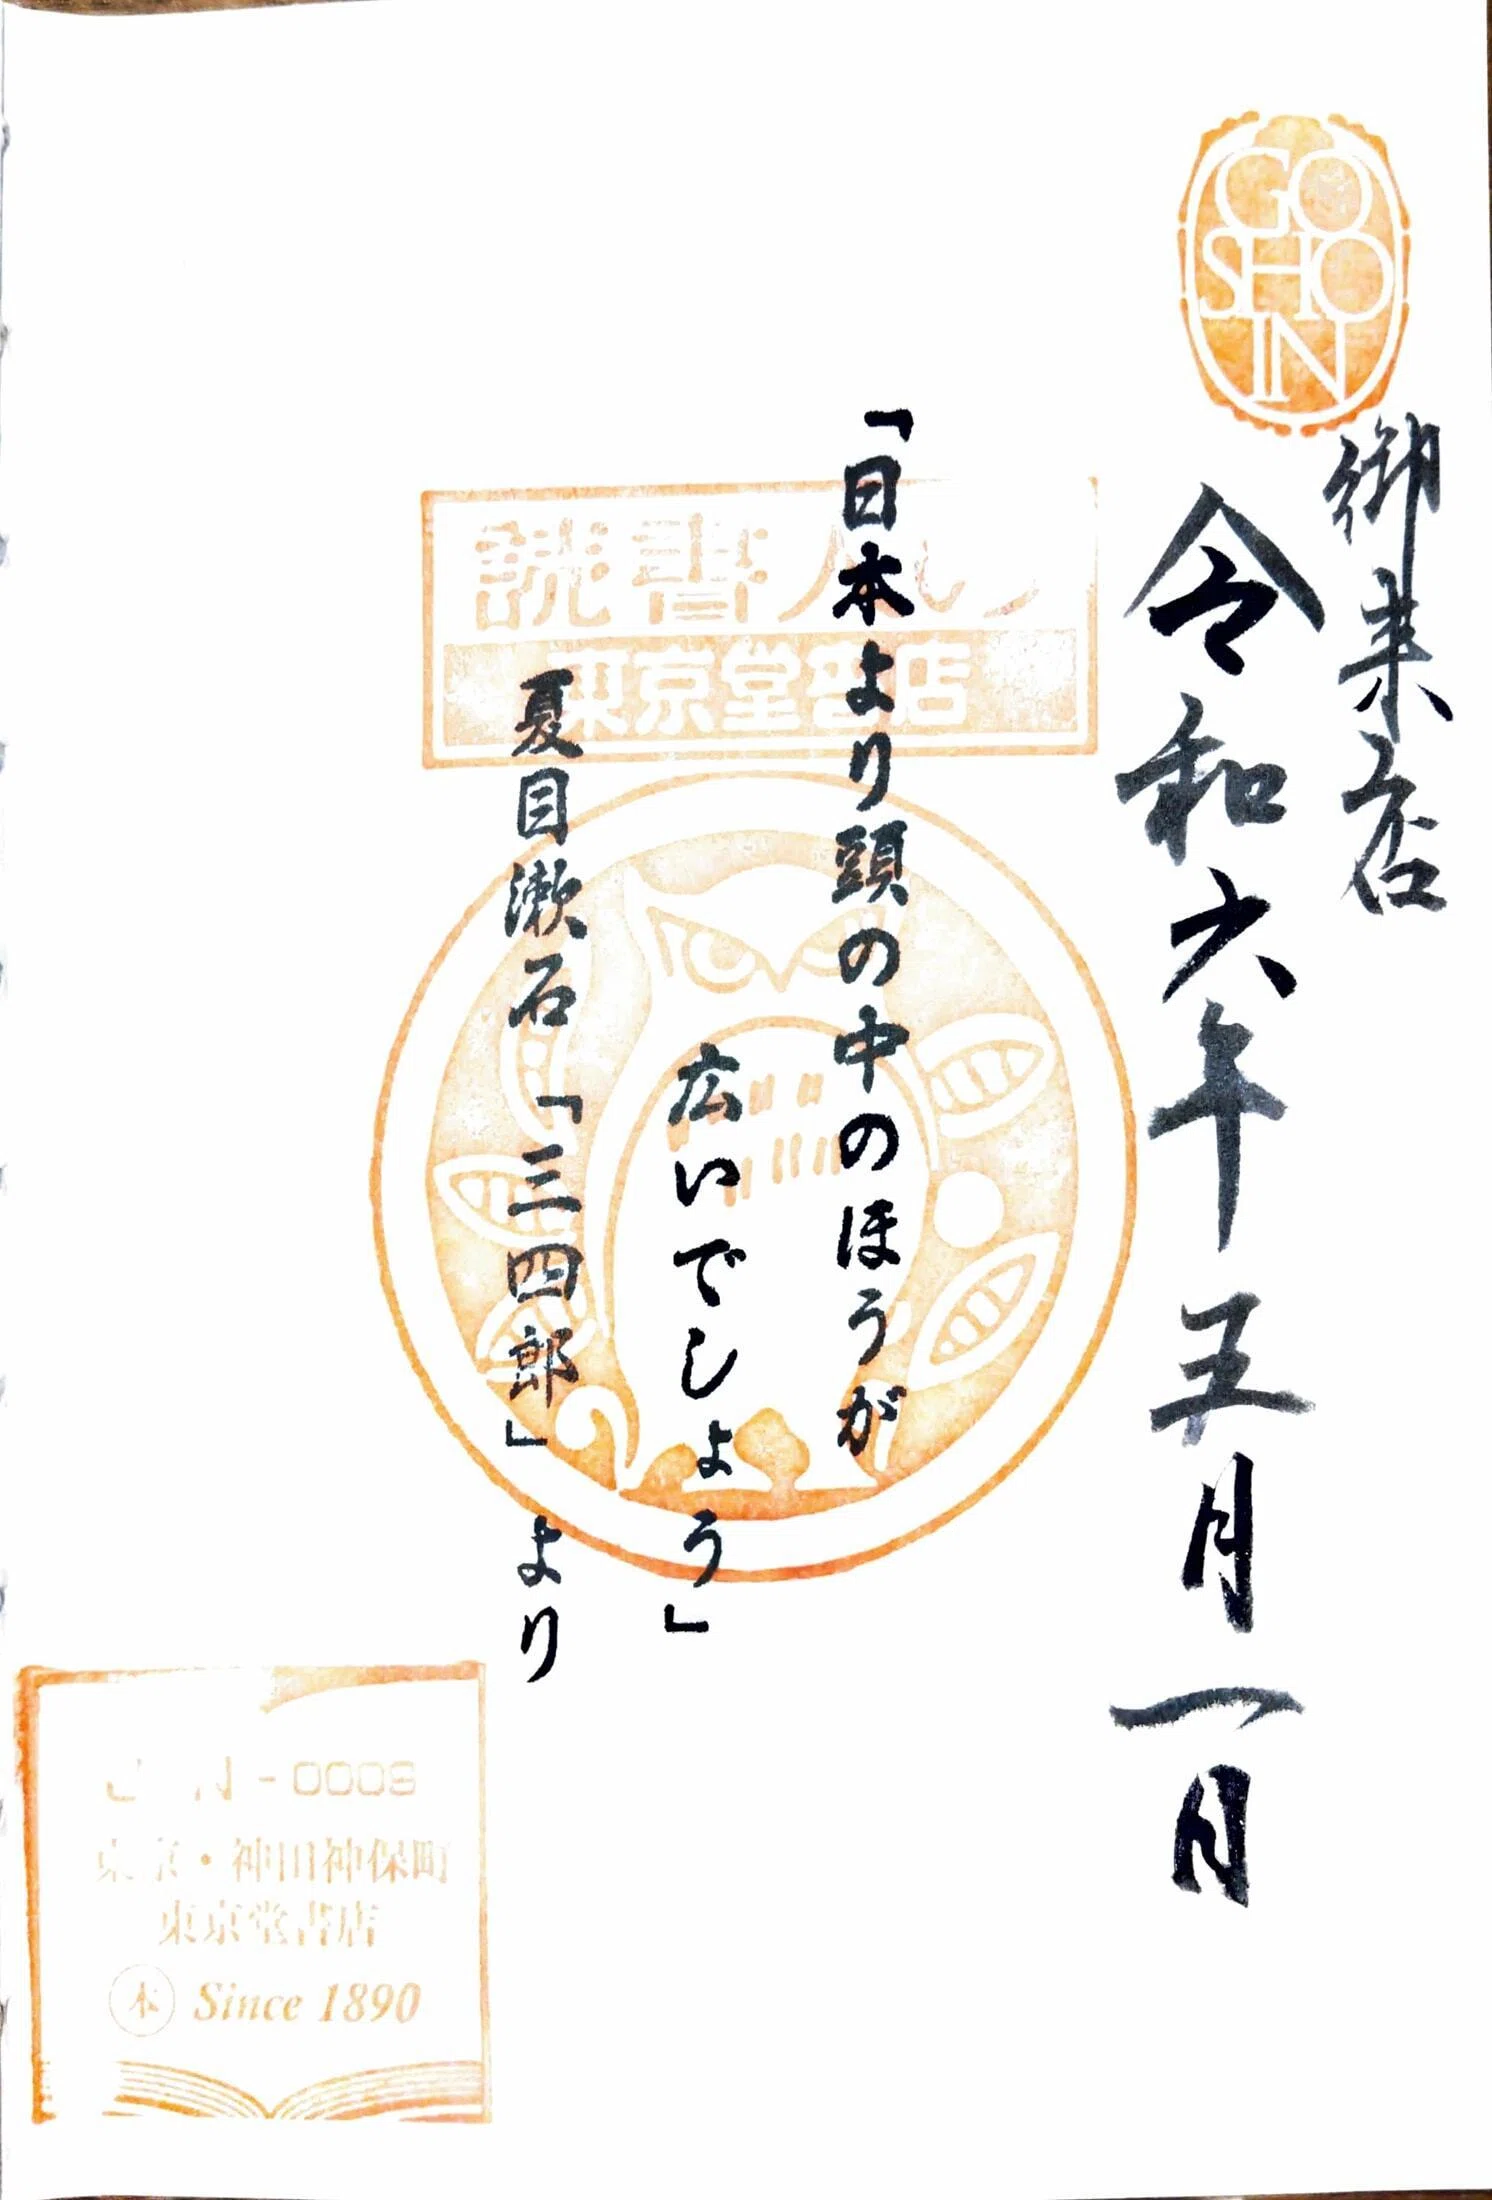 GO
SHO
IN
御来店
令和六年五月一日
「日本より頭の中のほうが
広いでしょう」
夏目漱石「三四郎」より
読書人の
東京堂書店
東京・神田神保町
東京堂書店
本 Since 1890